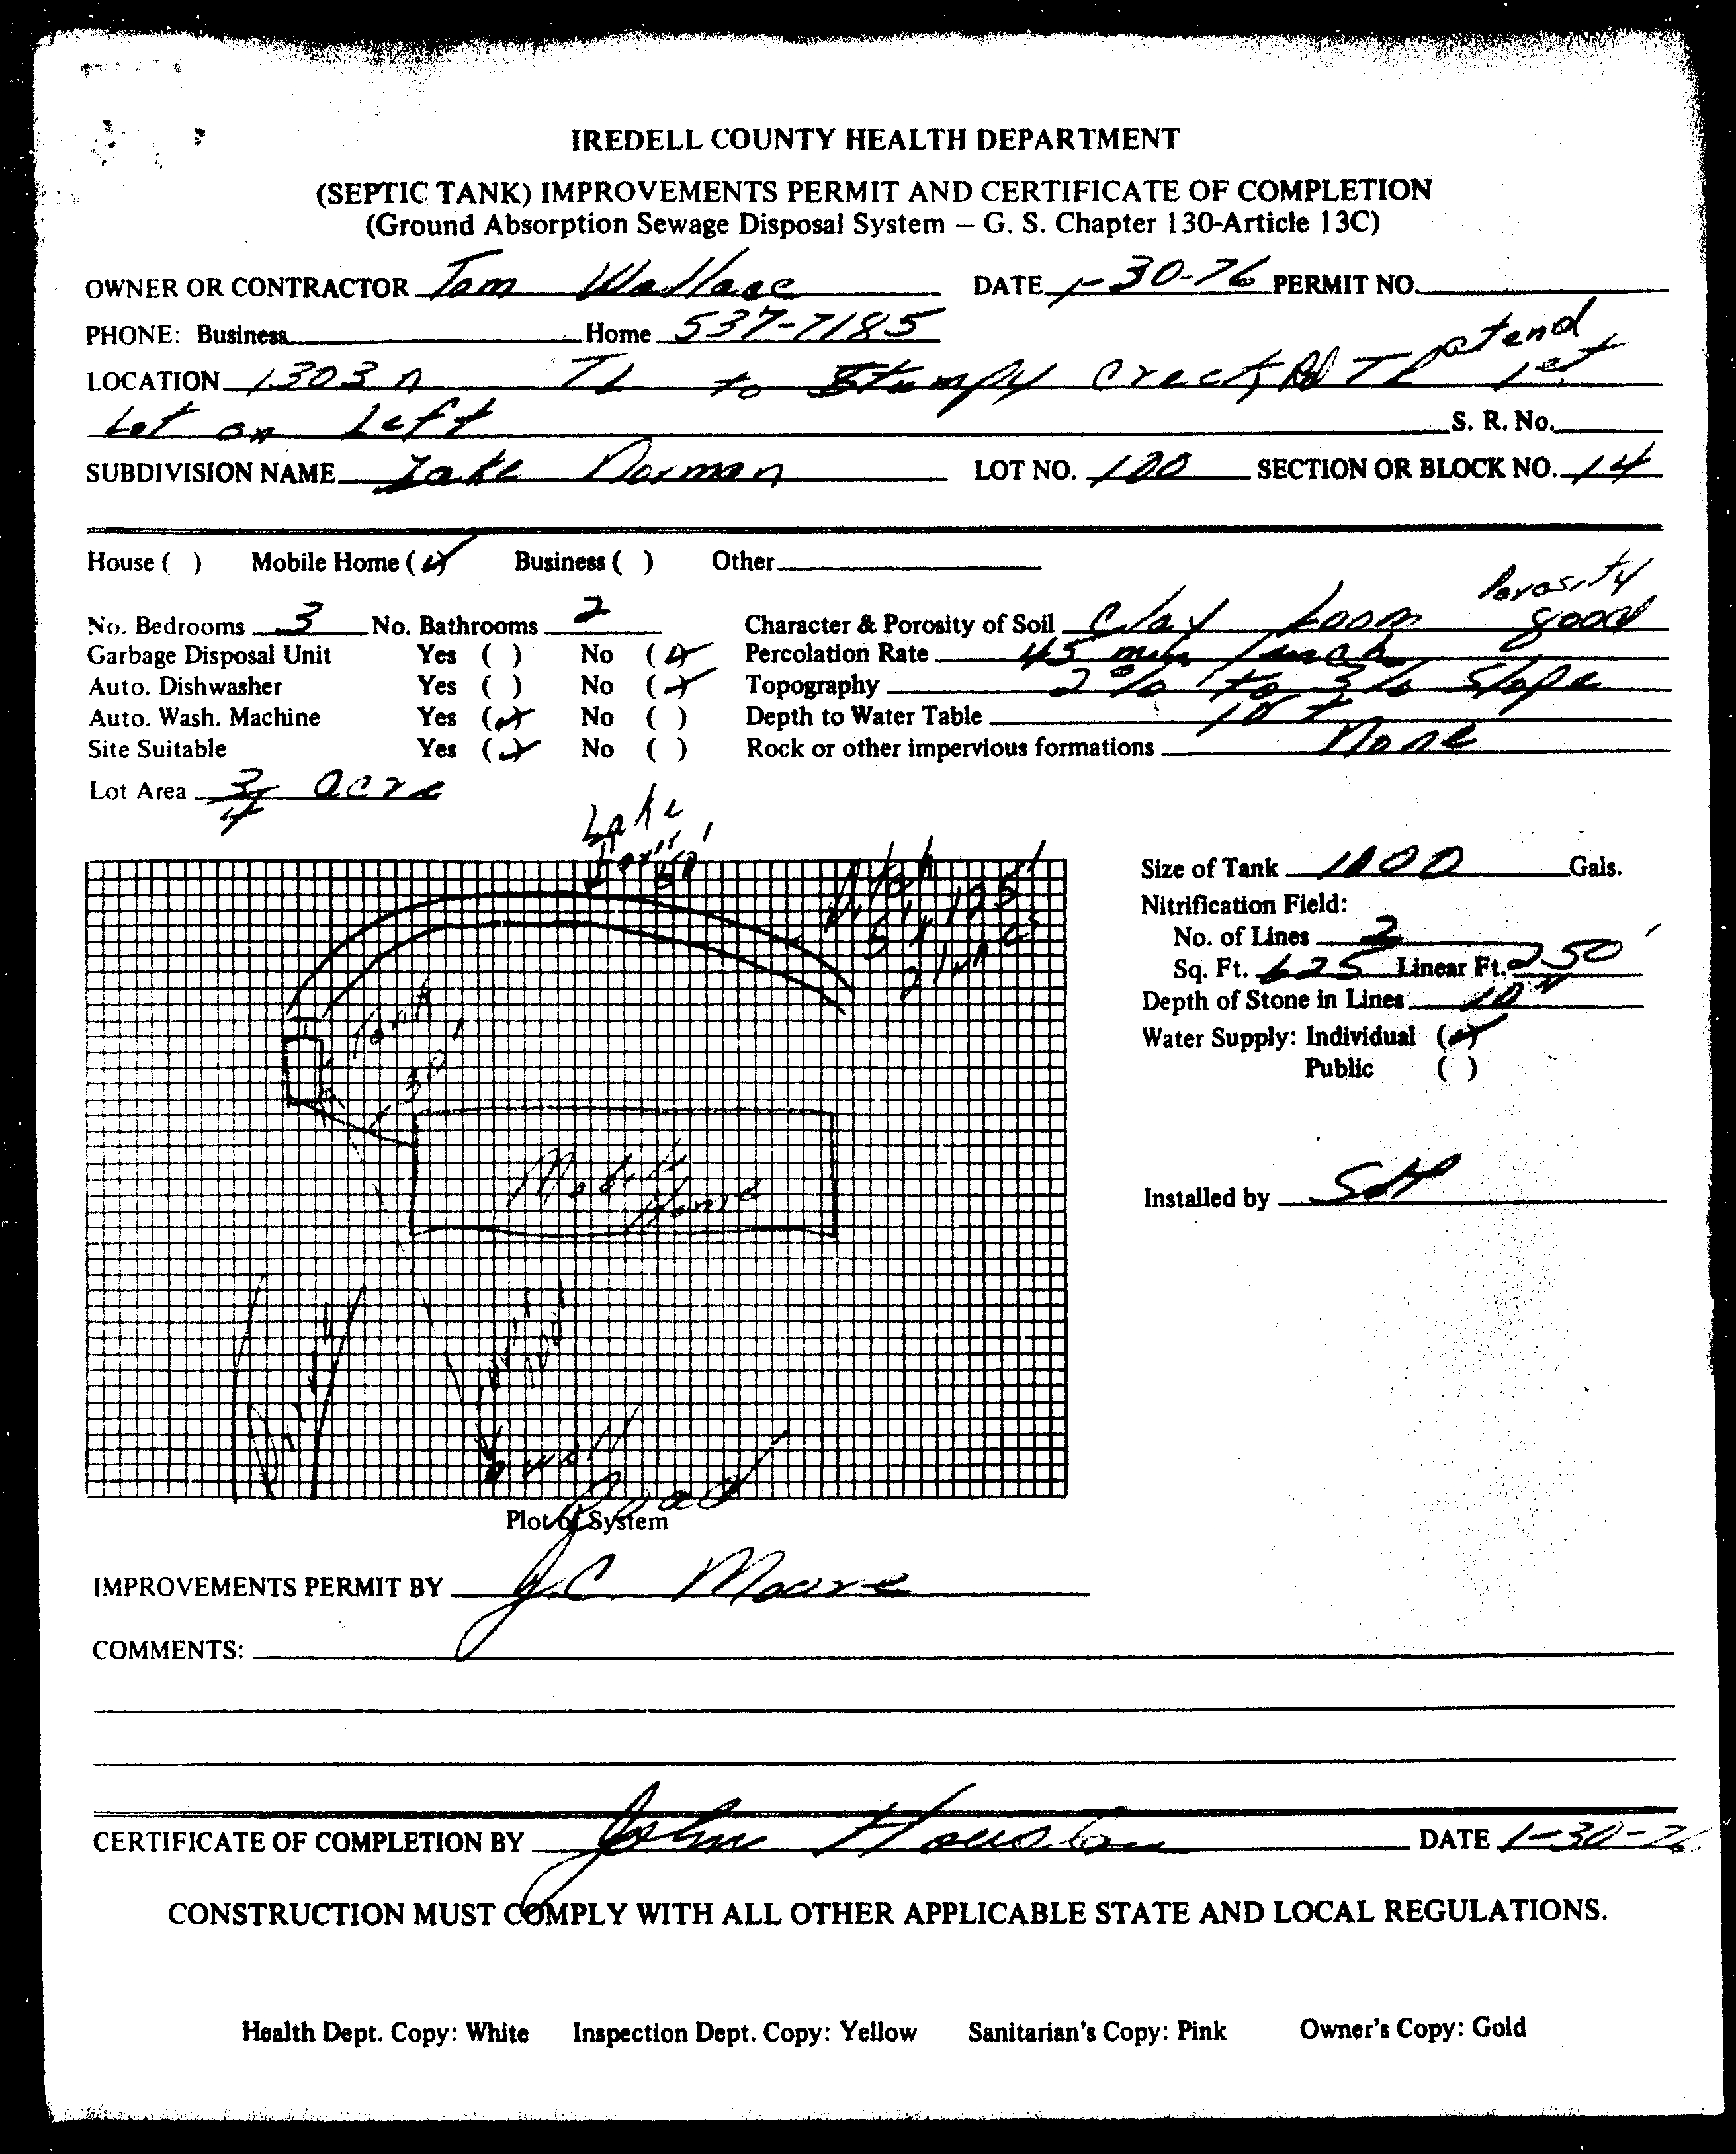 IREDELL COUNTY HEALTH DEPARTMENT
(SEPTIC TANK) IMPROVEMENTS PERMIT AND CERTIFICATE OF COMPLETION
(Ground Absorption Sewage Disposal System – G. S. Chapter 130-Article 13C)
OWNER OR CONTRACTOR Tom Wallace DATE 1-30-76 PERMIT NO.
PHONE: Business Home 537-7185
LOCATION 1303 n TL to Stumpy Creek Rd TL at end 1st
Lot on Left S. R. No.
SUBDIVISION NAME Lake Norman LOT NO. 100 SECTION OR BLOCK NO. 14
House ( ) Mobile Home (✓) Business ( ) Other
No. Bedrooms 3 No. Bathrooms 2 Character & Porosity of Soil Clay Loom Porosity good
Garbage Disposal Unit Yes ( ) No (✓) Percolation Rate 45 min/inch
Auto. Dishwasher Yes ( ) No (✓) Topography 2% to 3% Slope
Auto. Wash. Machine Yes (✓) No ( ) Depth to Water Table
Site Suitable Yes (✓) No ( ) Rock or other impervious formations None
Lot Area 3/4 acre
Lake
50'
5' x 125'
2 lines
Size of Tank 1000 Gals.
Nitrification Field:
No. of Lines 2
Sq. Ft. 625 Linear Ft. 250'
Depth of Stone in Lines 10"
Water Supply: Individual (✓)
Public ( )
Tank
30'
Mobile
Home
Installed by
100'
well
Road
Plot of System
IMPROVEMENTS PERMIT BY J.C. Moore
COMMENTS:
CERTIFICATE OF COMPLETION BY John Houston DATE 1-30-76
CONSTRUCTION MUST COMPLY WITH ALL OTHER APPLICABLE STATE AND LOCAL REGULATIONS.
Health Dept. Copy: White Inspection Dept. Copy: Yellow Sanitarian's Copy: Pink Owner's Copy: Gold